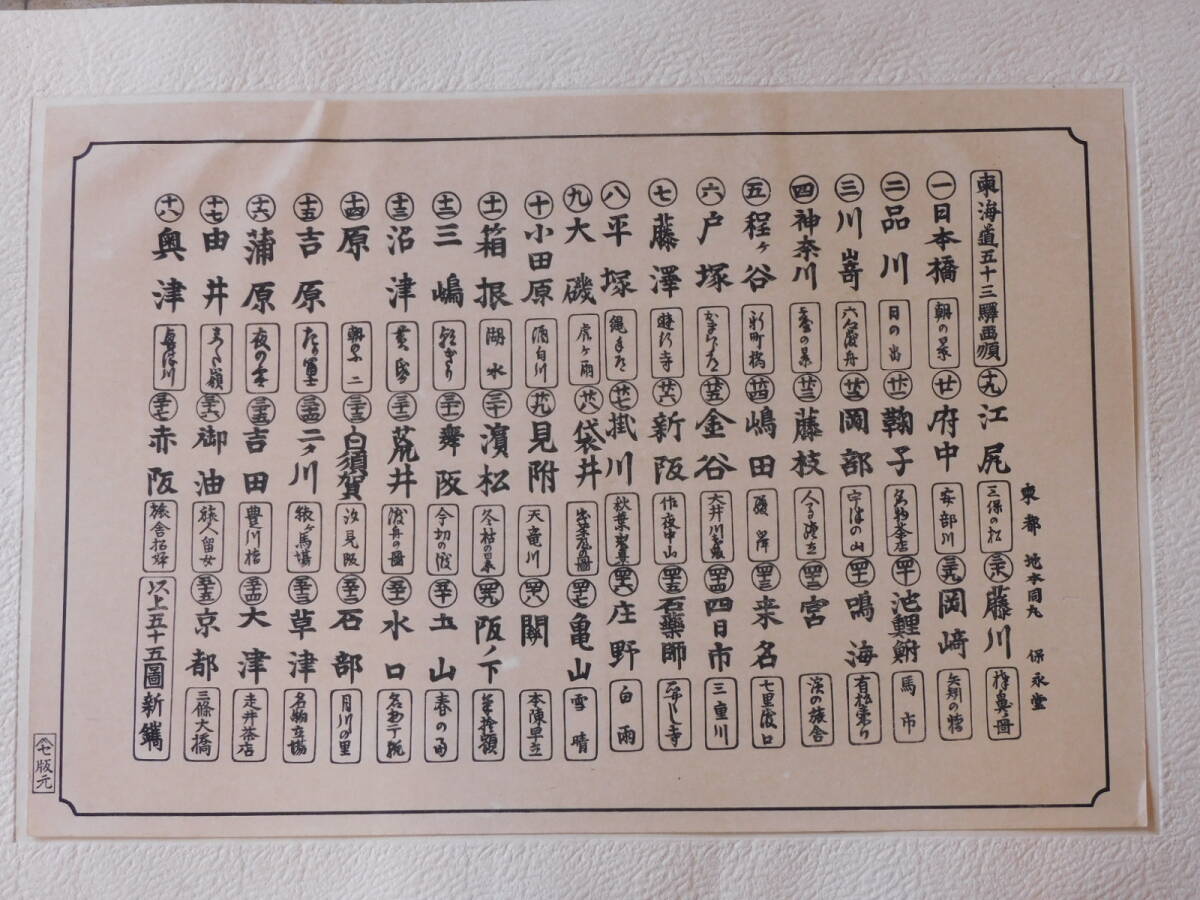 東海道五十三驛画
一 日本橋 朝の景
二 品川 日の出
三 川嵜 六合渡舟
四 神奈川 台の景
五 程ヶ谷 新町橋
六 戸塚
七 藤澤 遊行寺
八 平塚 縄手道
九 大磯 虎ヶ雨
十 小田原 酒匂川
十一 箱根 湖水
十二 三嶋 朝ぎり
十三 沼津 黄昏
十四 原 朝の不二
十五 吉原 左富士
十六 蒲原 夜の雪
十七 由井 さつた嶺
十八 奥津 興津川
十九 江尻 三保の松
廿 府中 安部川
廿一 鞠子 名物茶店
廿二 岡部 宇津の山
廿三 藤枝 人馬継立
廿四 嶋田
廿五 金谷 大井川遠岸
廿六 新阪 作夜中山
廿七 掛川 秋葉遠景
廿八 袋井 出茶屋の圖
廿九 見附 天竜川
三十 濱松 冬枯の景
三十一 舞阪 今切の渡
三十二 荒井 渡舟の圖
三十三 白須賀 汐見阪
三十四 二タ川 猿ヶ馬場
三十五 吉田 豊川橋
三十六 御油 旅人留女
三十七 赤阪 旅舎招婦
三十八 藤川 棒鼻圖
三十九 岡﨑 矢矧の橋
四十 池鯉鮒 馬市
四十一 鳴海 有松絞り
四十二 宮 濱の旅舎
四十三 桒名 七里渡口
四十四 四日市 三重川
四十五 石藥師
四十六 庄野 白雨
四十七 亀山 雪晴
四十八 關 本陣早立
四十九 阪ノ下 筆捨嶺
五十 土山 春の雨
五十一 水口 名物干瓢
五十二 石部 目川の里
五十三 草津 名物立場
五十四 大津 走井茶店
五十五 京都 三條大橋
以上五十五圖新鐫
東都 地本問丸 保永堂
版元